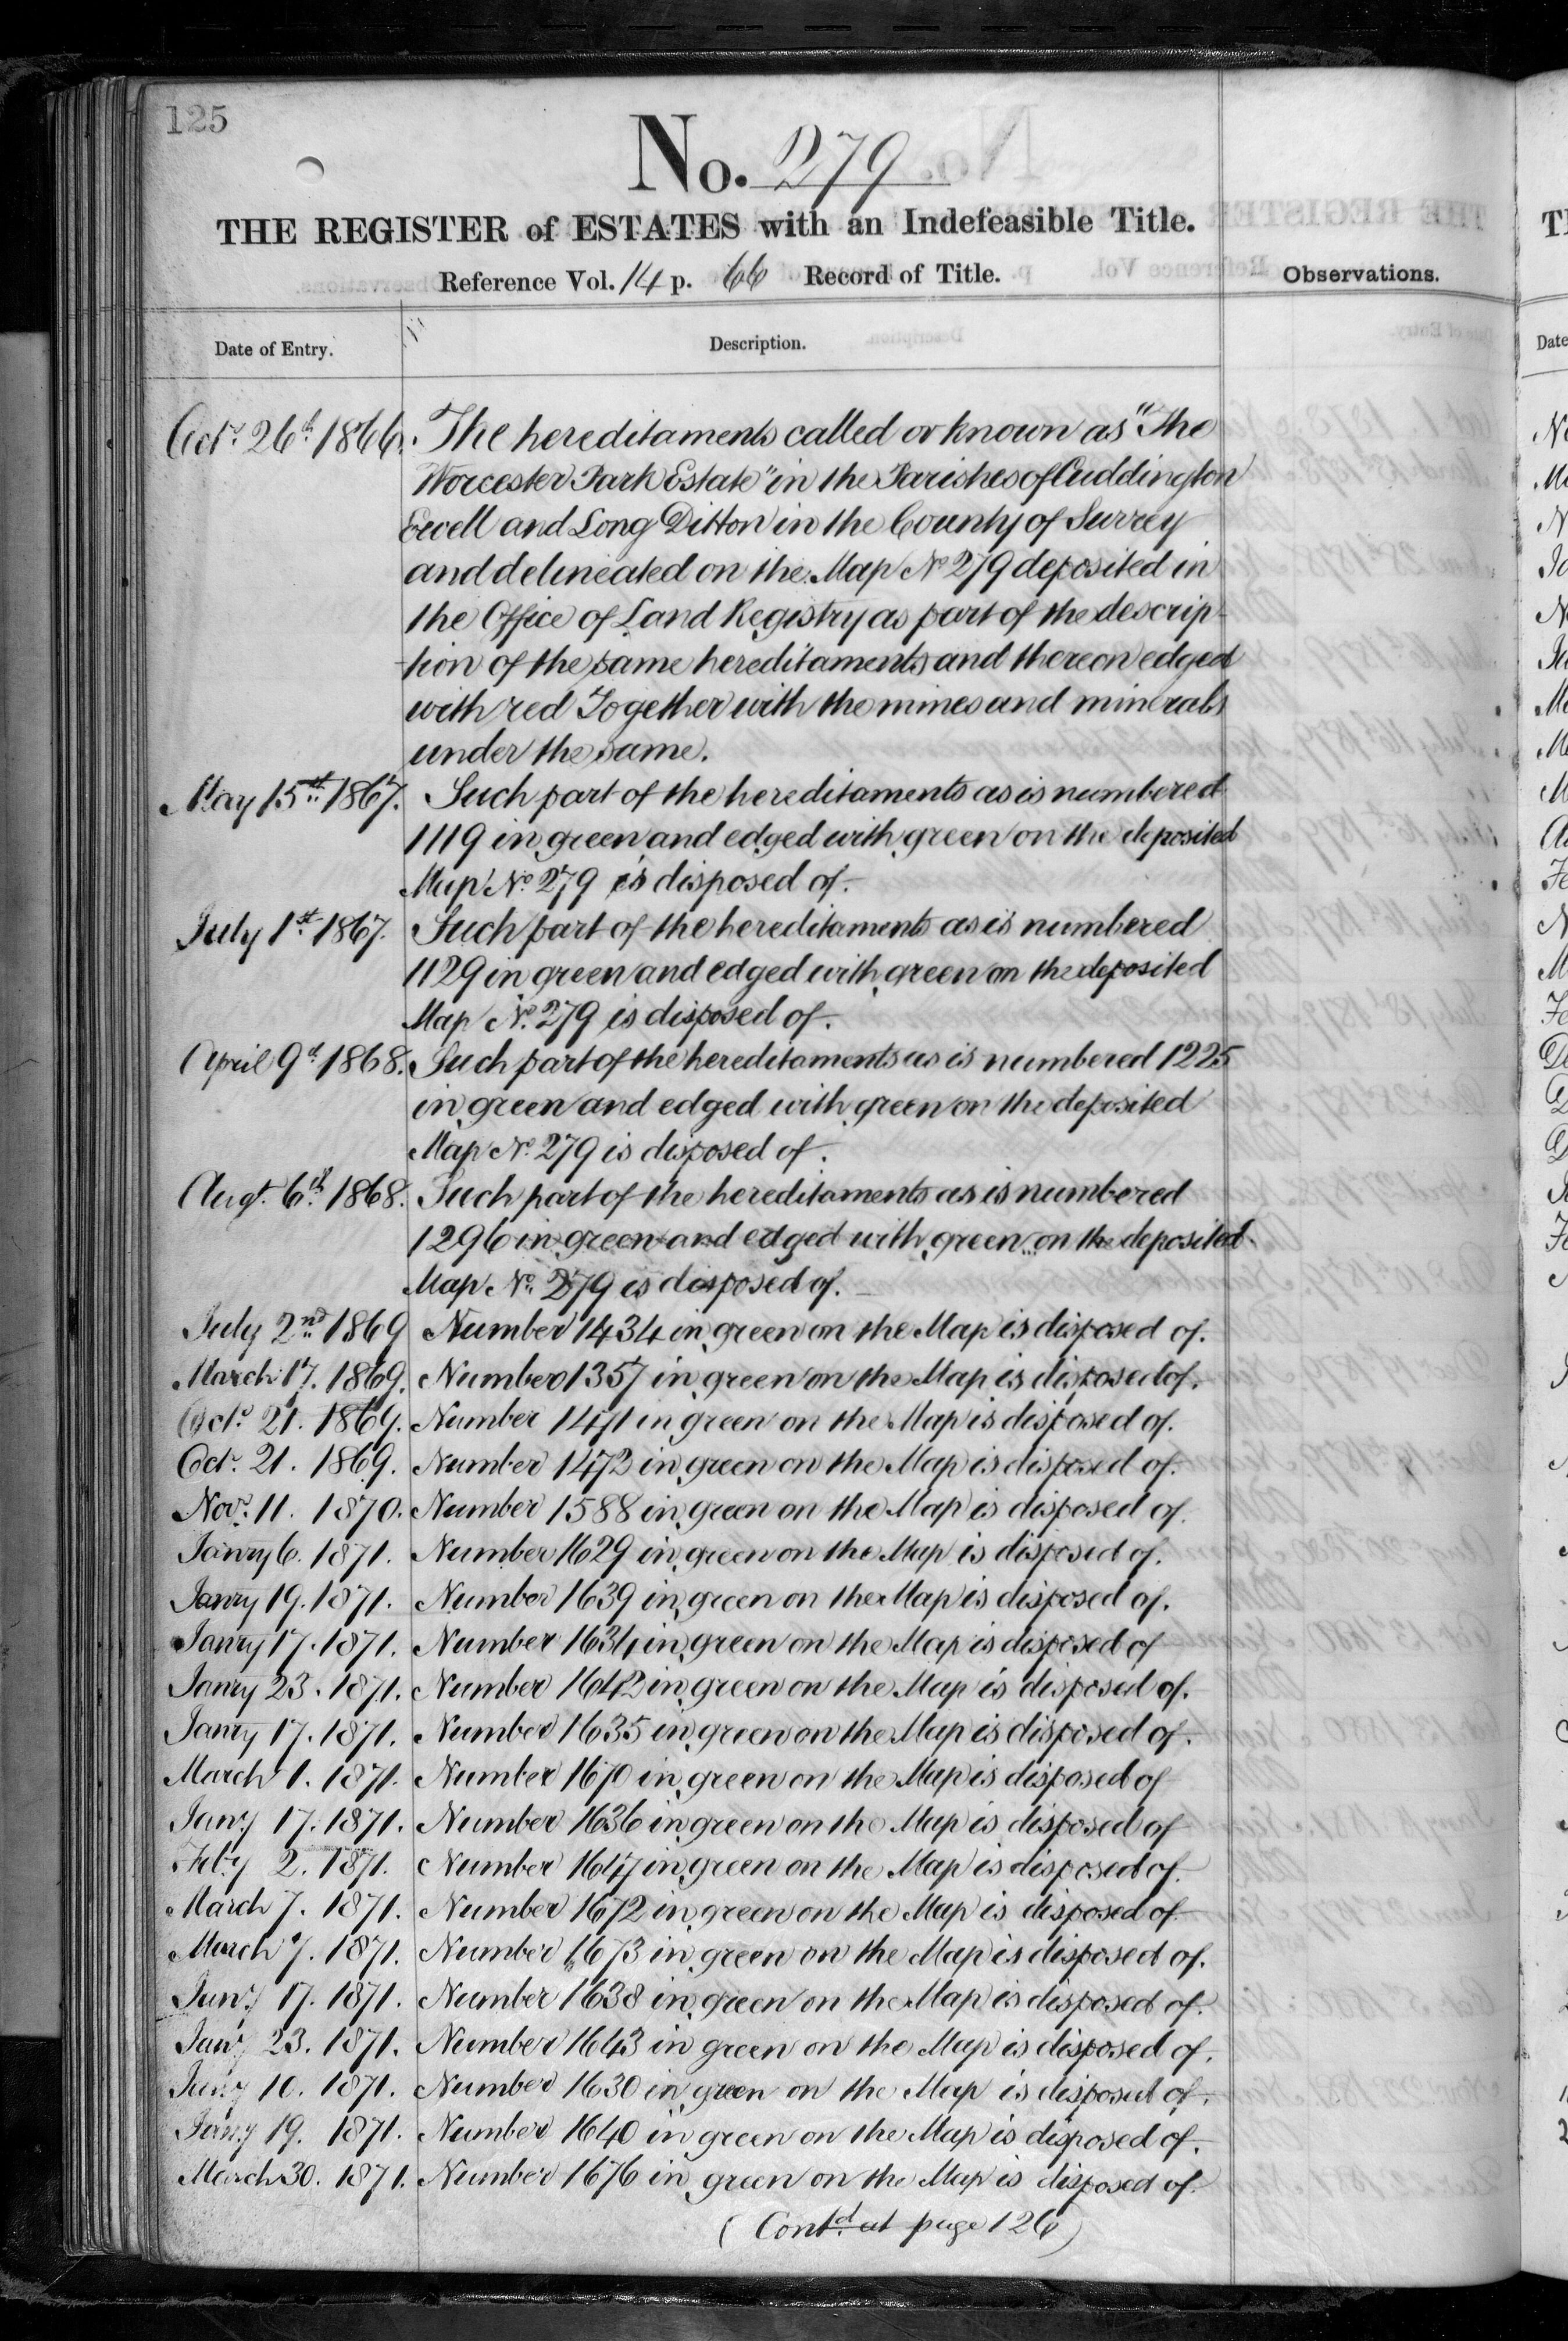 125
No. 279
THE REGISTER of ESTATES with an Indefeasible Title.
Reference Vol. 14 p. 66 Record of Title.
Observations.
Date of Entry.
Description.
Octr. 26th 1866. The hereditaments called or known as "The
Worcester Park Estate" in the Parishes of Cuddington
Ewell and Long Ditton in the County of Surrey
and delineated on the Map No. 279 deposited in
the Office of Land Registry as part of the descrip-
-tion of the same hereditaments and thereon edged
with red Together with the mines and minerals
under the same.
May 15th 1867. Such part of the hereditaments as is numbered
1119 in green and edged with green on the deposited
Map No. 279 is disposed of.
July 1st 1867. Such part of the hereditaments as is numbered
1129 in green and edged with green on the deposited
Map No. 279 is disposed of.
April 9th 1868. Such part of the hereditaments as is numbered 1225
in green and edged with green on the deposited
Map No. 279 is disposed of.
Augt. 6th 1868. Such part of the hereditaments as is numbered
1296 in green and edged with green on the deposited
Map No. 279 is disposed of.
July 2nd 1869 Number 1434 in green on the Map is disposed of.
March 17. 1869. Number 1357 in green on the Map is disposed of.
Octr. 21. 1869. Number 1471 in green on the Map is disposed of.
Octr. 21. 1869. Number 1472 in green on the Map is disposed of.
Novr. 11. 1870. Number 1588 in green on the Map is disposed of.
Janry 6. 1871. Number 1629 in green on the Map is disposed of.
Janry 19. 1871. Number 1639 in green on the Map is disposed of.
Janry 17. 1871. Number 1634 in green on the Map is disposed of
Janry 23. 1871. Number 1642 in green on the Map is disposed of.
Janry 17. 1871. Number 1635 in green on the Map is disposed of.
March 1. 1871. Number 1670 in green on the Map is disposed of
Jany 17. 1871. Number 1636 in green on the Map is disposed of
Feby 2. 1871. Number 1647 in green on the Map is disposed of.
March 7. 1871. Number 1672 in green on the Map is disposed of.
March 7. 1871. Number 1673 in green on the Map is disposed of.
Jany 17. 1871. Number 1638 in green on the Map is disposed of.
Jany 23. 1871. Number 1643 in green on the Map is disposed of.
Jany 10. 1871. Number 1630 in green on the Map is disposed of.
Jany 19. 1871. Number 1640 in green on the Map is disposed of.
March 30. 1871. Number 1676 in green on the Map is disposed of.
(Contd. at page 126)